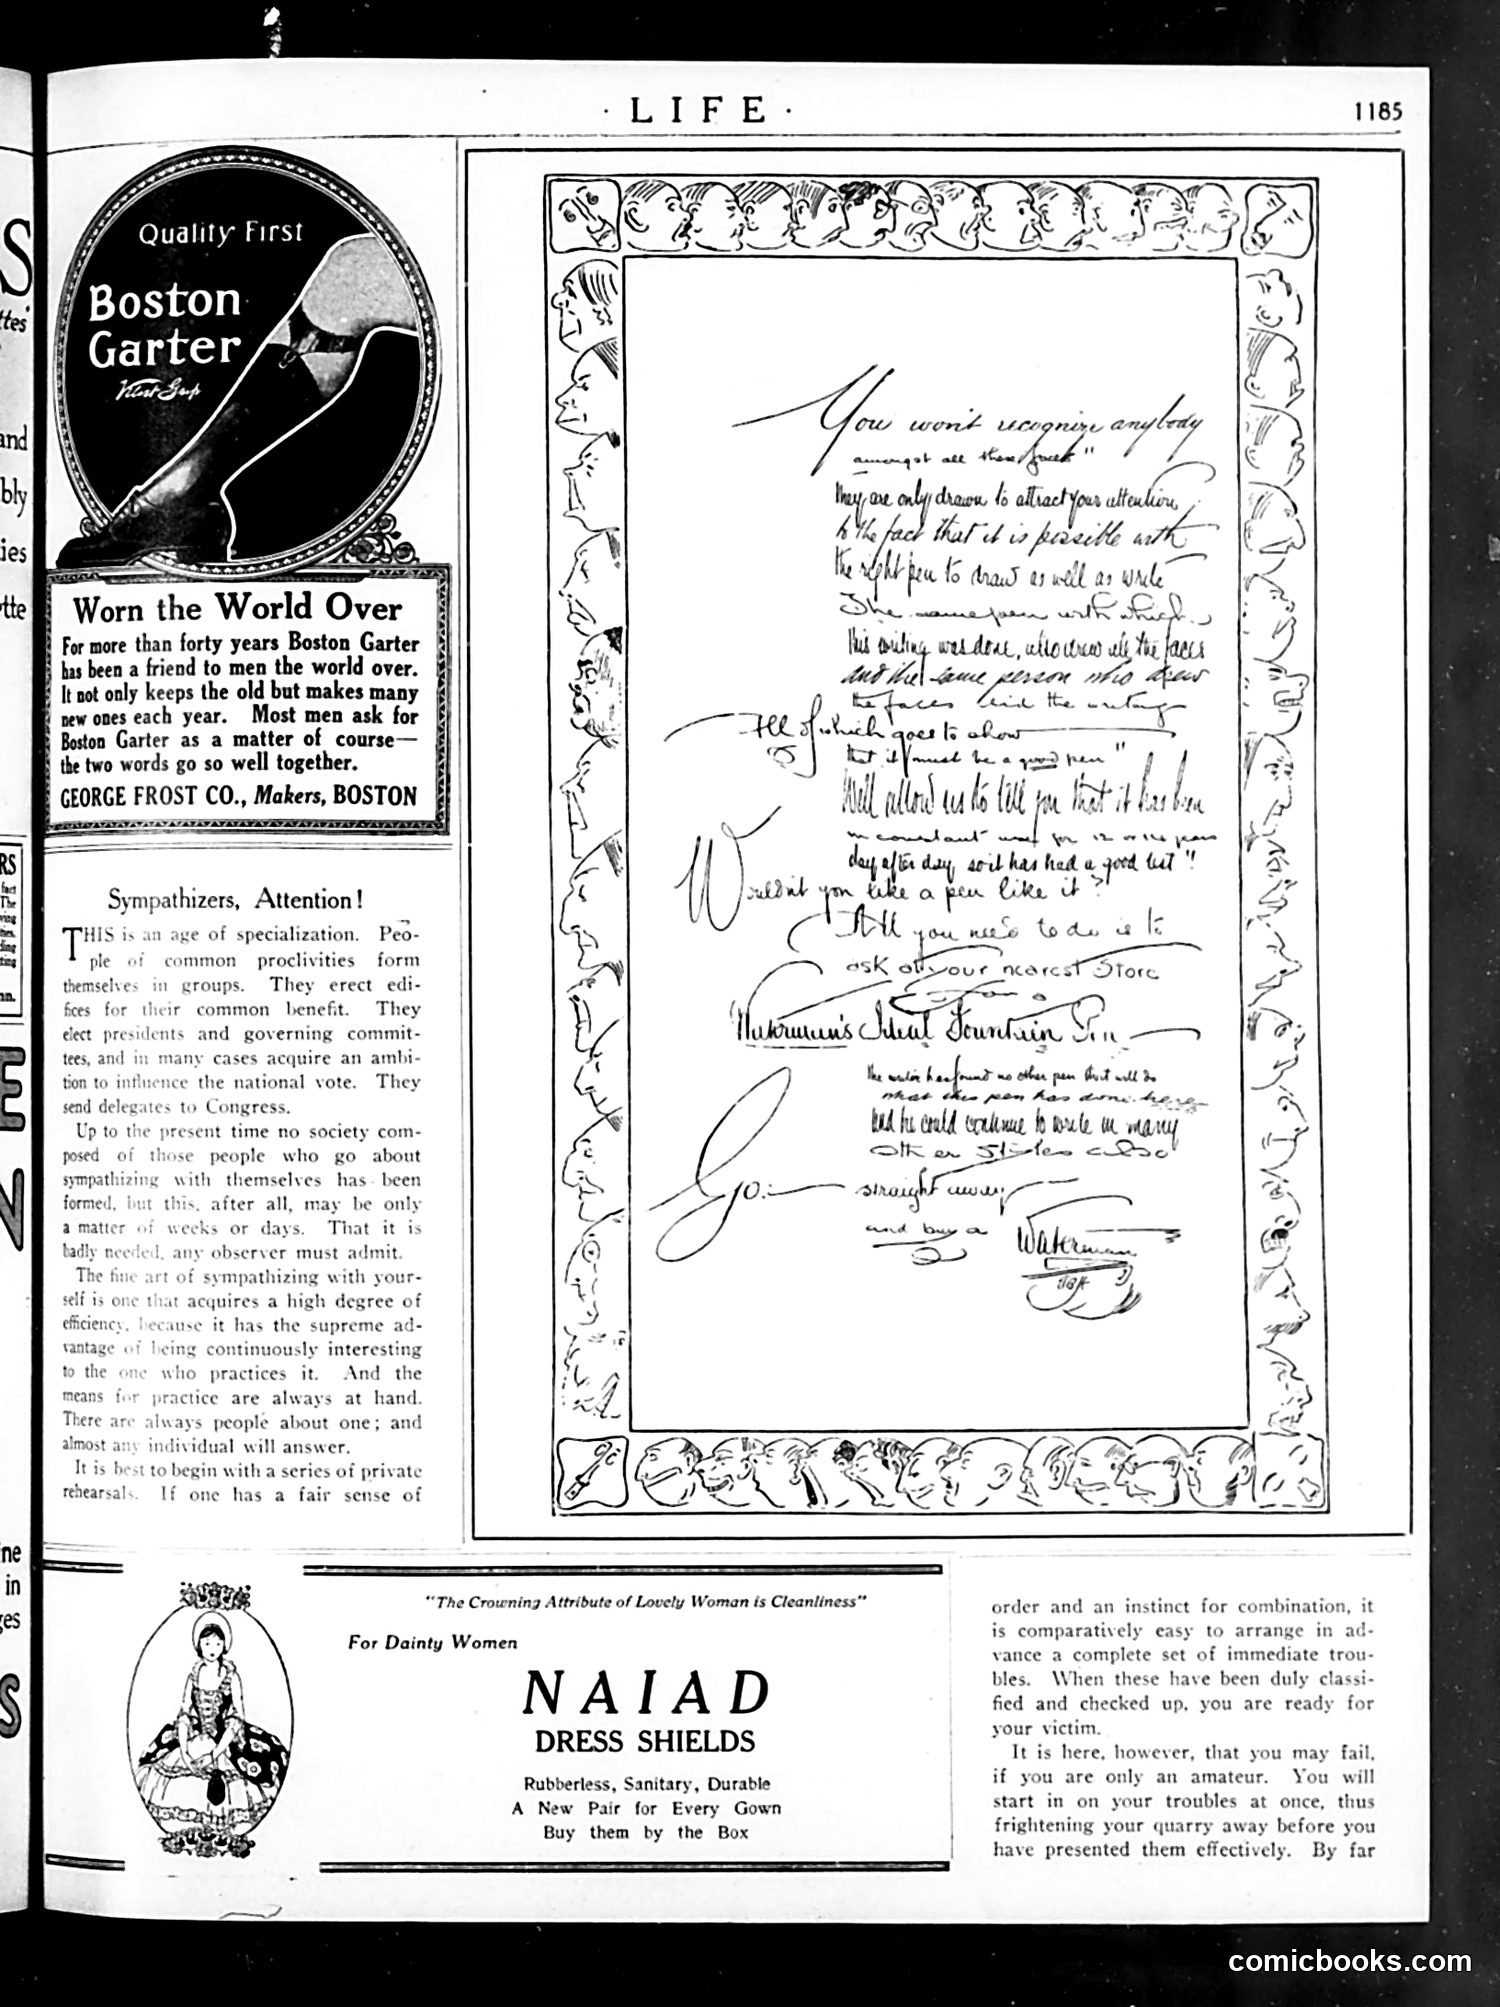 · LIFE ·
1185
Quality First
Boston
Garter
Velvet Grip
Worn the World Over
For more than forty years Boston Garter
has been a friend to men the world over.
It not only keeps the old but makes many
new ones each year. Most men ask for
Boston Garter as a matter of course—
the two words go so well together.
GEORGE FROST CO., Makers, BOSTON
Sympathizers, Attention!
THIS is an age of specialization. Peo-
ple of common proclivities form
themselves in groups. They erect edi-
fices for their common benefit. They
elect presidents and governing commit-
tees, and in many cases acquire an ambi-
tion to influence the national vote. They
send delegates to Congress.
Up to the present time no society com-
posed of those people who go about
sympathizing with themselves has been
formed, but this, after all, may be only
a matter of weeks or days. That it is
badly needed, any observer must admit.
The fine art of sympathizing with your-
self is one that acquires a high degree of
efficiency, because it has the supreme ad-
vantage of being continuously interesting
to the one who practices it. And the
means for practice are always at hand.
There are always people about one; and
almost any individual will answer.
It is best to begin with a series of private
rehearsals. If one has a fair sense of
You won't recognize anybody
amongst all these faces"
They are only drawn to attract your attention
to the fact that it is possible with
the right pen to draw as well as write
The same pen with which
this writing was done, also drew all the faces
and the same person who drew
the faces did the writing
All of which goes to show
that it must be a good pen"
Well allow us to tell you that it has been
in constant use for 12 or 14 years
day after day so it has had a good test"!
Wouldn't you like a pen like it?
All you need to do is to
ask at your nearest Store
for a
"Waterman's Ideal Fountain Pen
The writer has found no other pen that will do
what this pen has done here
And he could continue to write in many
other styles also
Go:— straight away
and buy a Waterman
"The Crowning Attribute of Lovely Woman is Cleanliness"
For Dainty Women
NAIAD
DRESS SHIELDS
Rubberless, Sanitary, Durable
A New Pair for Every Gown
Buy them by the Box
order and an instinct for combination, it
is comparatively easy to arrange in ad-
vance a complete set of immediate trou-
bles. When these have been duly classi-
fied and checked up, you are ready for
your victim.
It is here, however, that you may fail,
if you are only an amateur. You will
start in on your troubles at once, thus
frightening your quarry away before you
have presented them effectively. By far
comicbooks.com